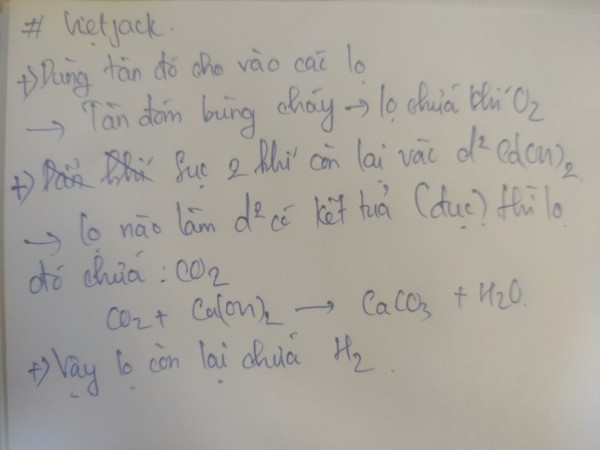 # Vietjack.
+) Dùng tàn đó cho vào cái lọ
→ Tàn đóm bùng cháy → lọ chứa khí O2
+) Sục 2 khí còn lại vào d² Ca(OH)2
→ lọ nào làm d² có kết tủa (đục) thì lọ
đó chứa : CO2
CO2 + Ca(OH)2 → CaCO3 + H2O.
+) Vậy lọ còn lại chứa H2.